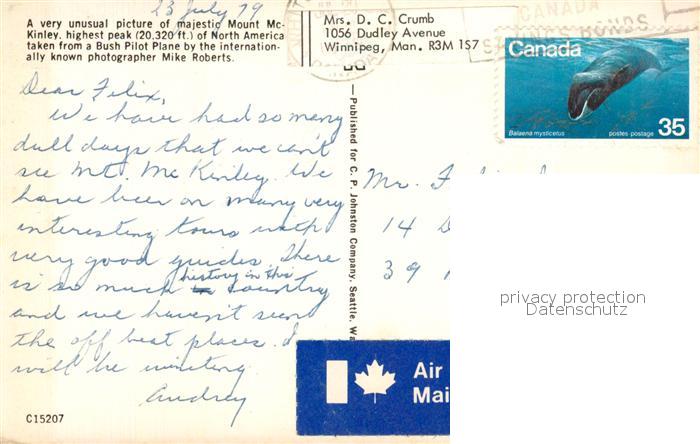 23 July 79
A very unusual picture of majestic Mount Mc-
Kinley, highest peak (20,320 ft.) of North America
taken from a Bush Pilot Plane by the internation-
ally known photographer Mike Roberts.
Mrs. D. C. Crumb
1056 Dudley Avenue
Winnipeg, Man. R3M 1S7
CANADA
BONDS
Canada
Balaena mysticetus
postes-postage
35
Dear Felix,
We have had so many
dull days that we can't
see Mt. McKinley. We
have been on many very
interesting tours with
very good guides. There
is so much history in this country
and we haven't seen
the off beat places. I
will be writing.
Audrey
— Published for C. P. Johnston Company, Seattle, Wa
Mr. F
14 D
39
privacy protection
Datenschutz
Air
Mai
C15207